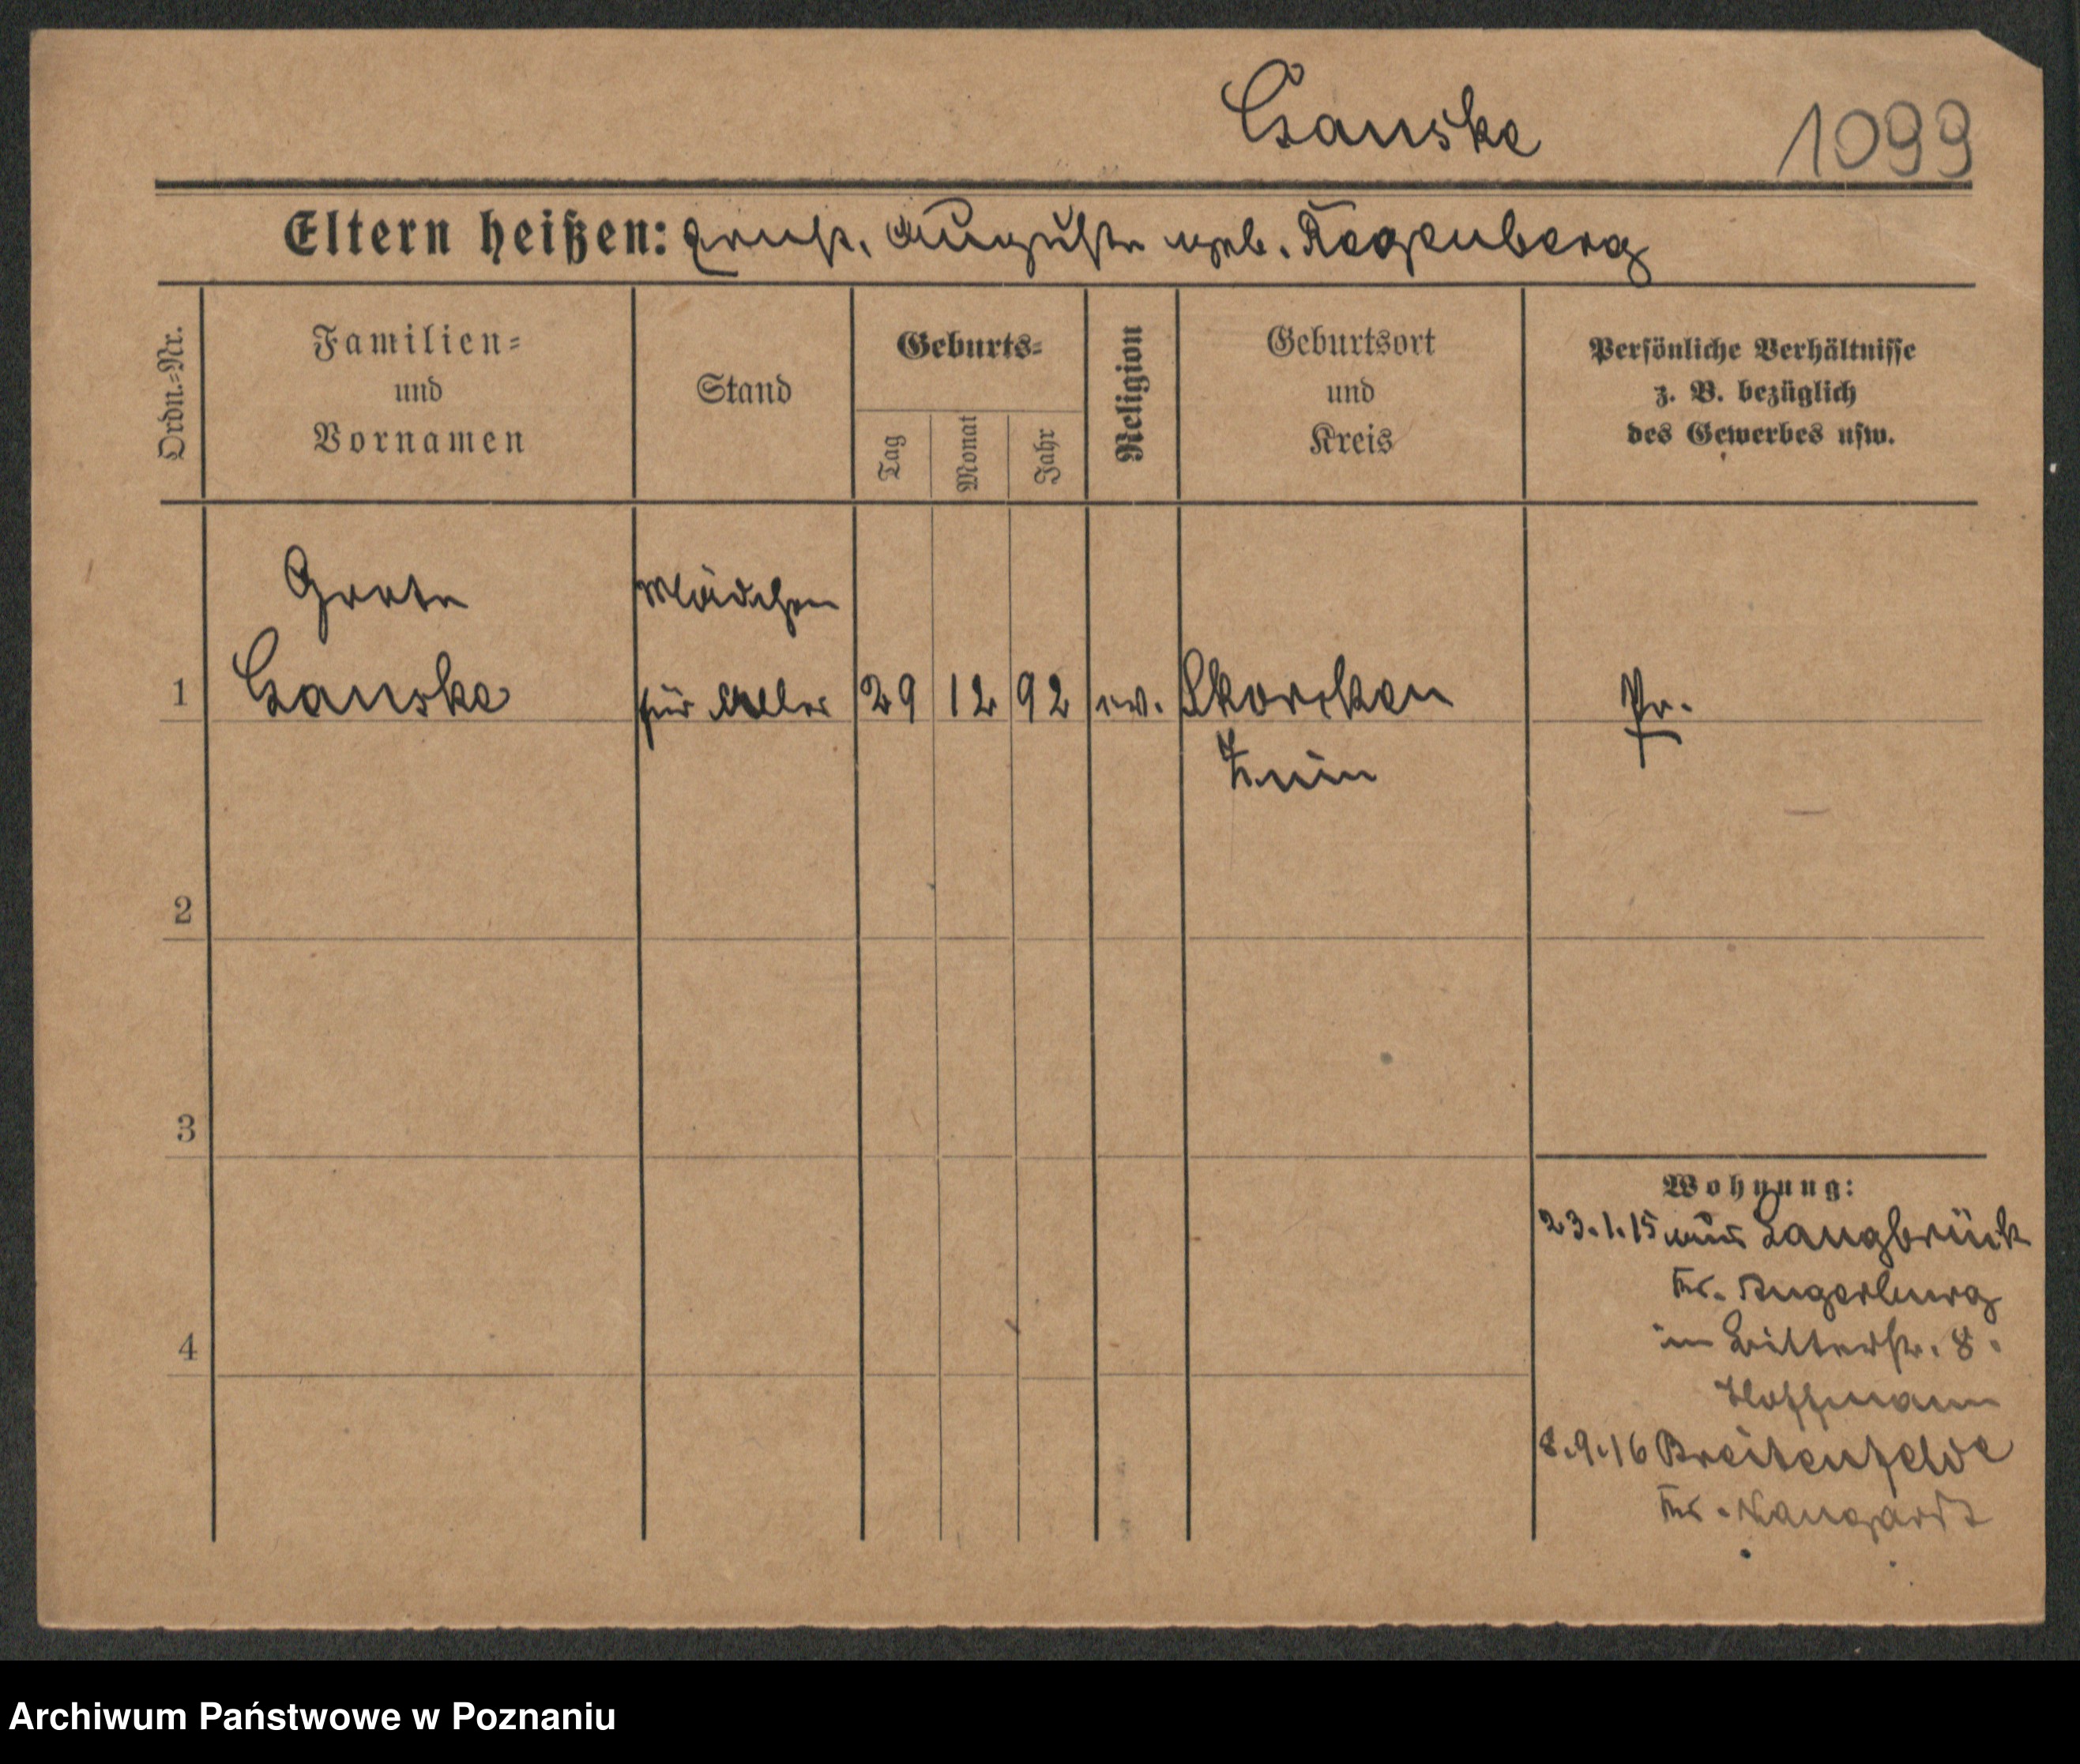 Ganske
1099
Eltern heißen: Ernst, Auguste geb. Regenberg
Ordn.=Nr.
Familien=
und
Vornamen
Stand
Geburts=
Tag
Monat
Jahr
Religion
Geburtsort
und
Kreis
Persönliche Verhältnisse
z. B. bezüglich
des Gewerbes usw.
Grete Mädchen
1 Ganske für Alles 29 12 92 ev. Skorcken Pr.
Znin
2
3
4
Wohnung:
23.1.15 aus Langbrück
Kr. Angerburg
in Ritterstr. 8.
Hoffmann
8.9.16 Breitenfelde
Kr. Naugardt
Archiwum Państwowe w Poznaniu